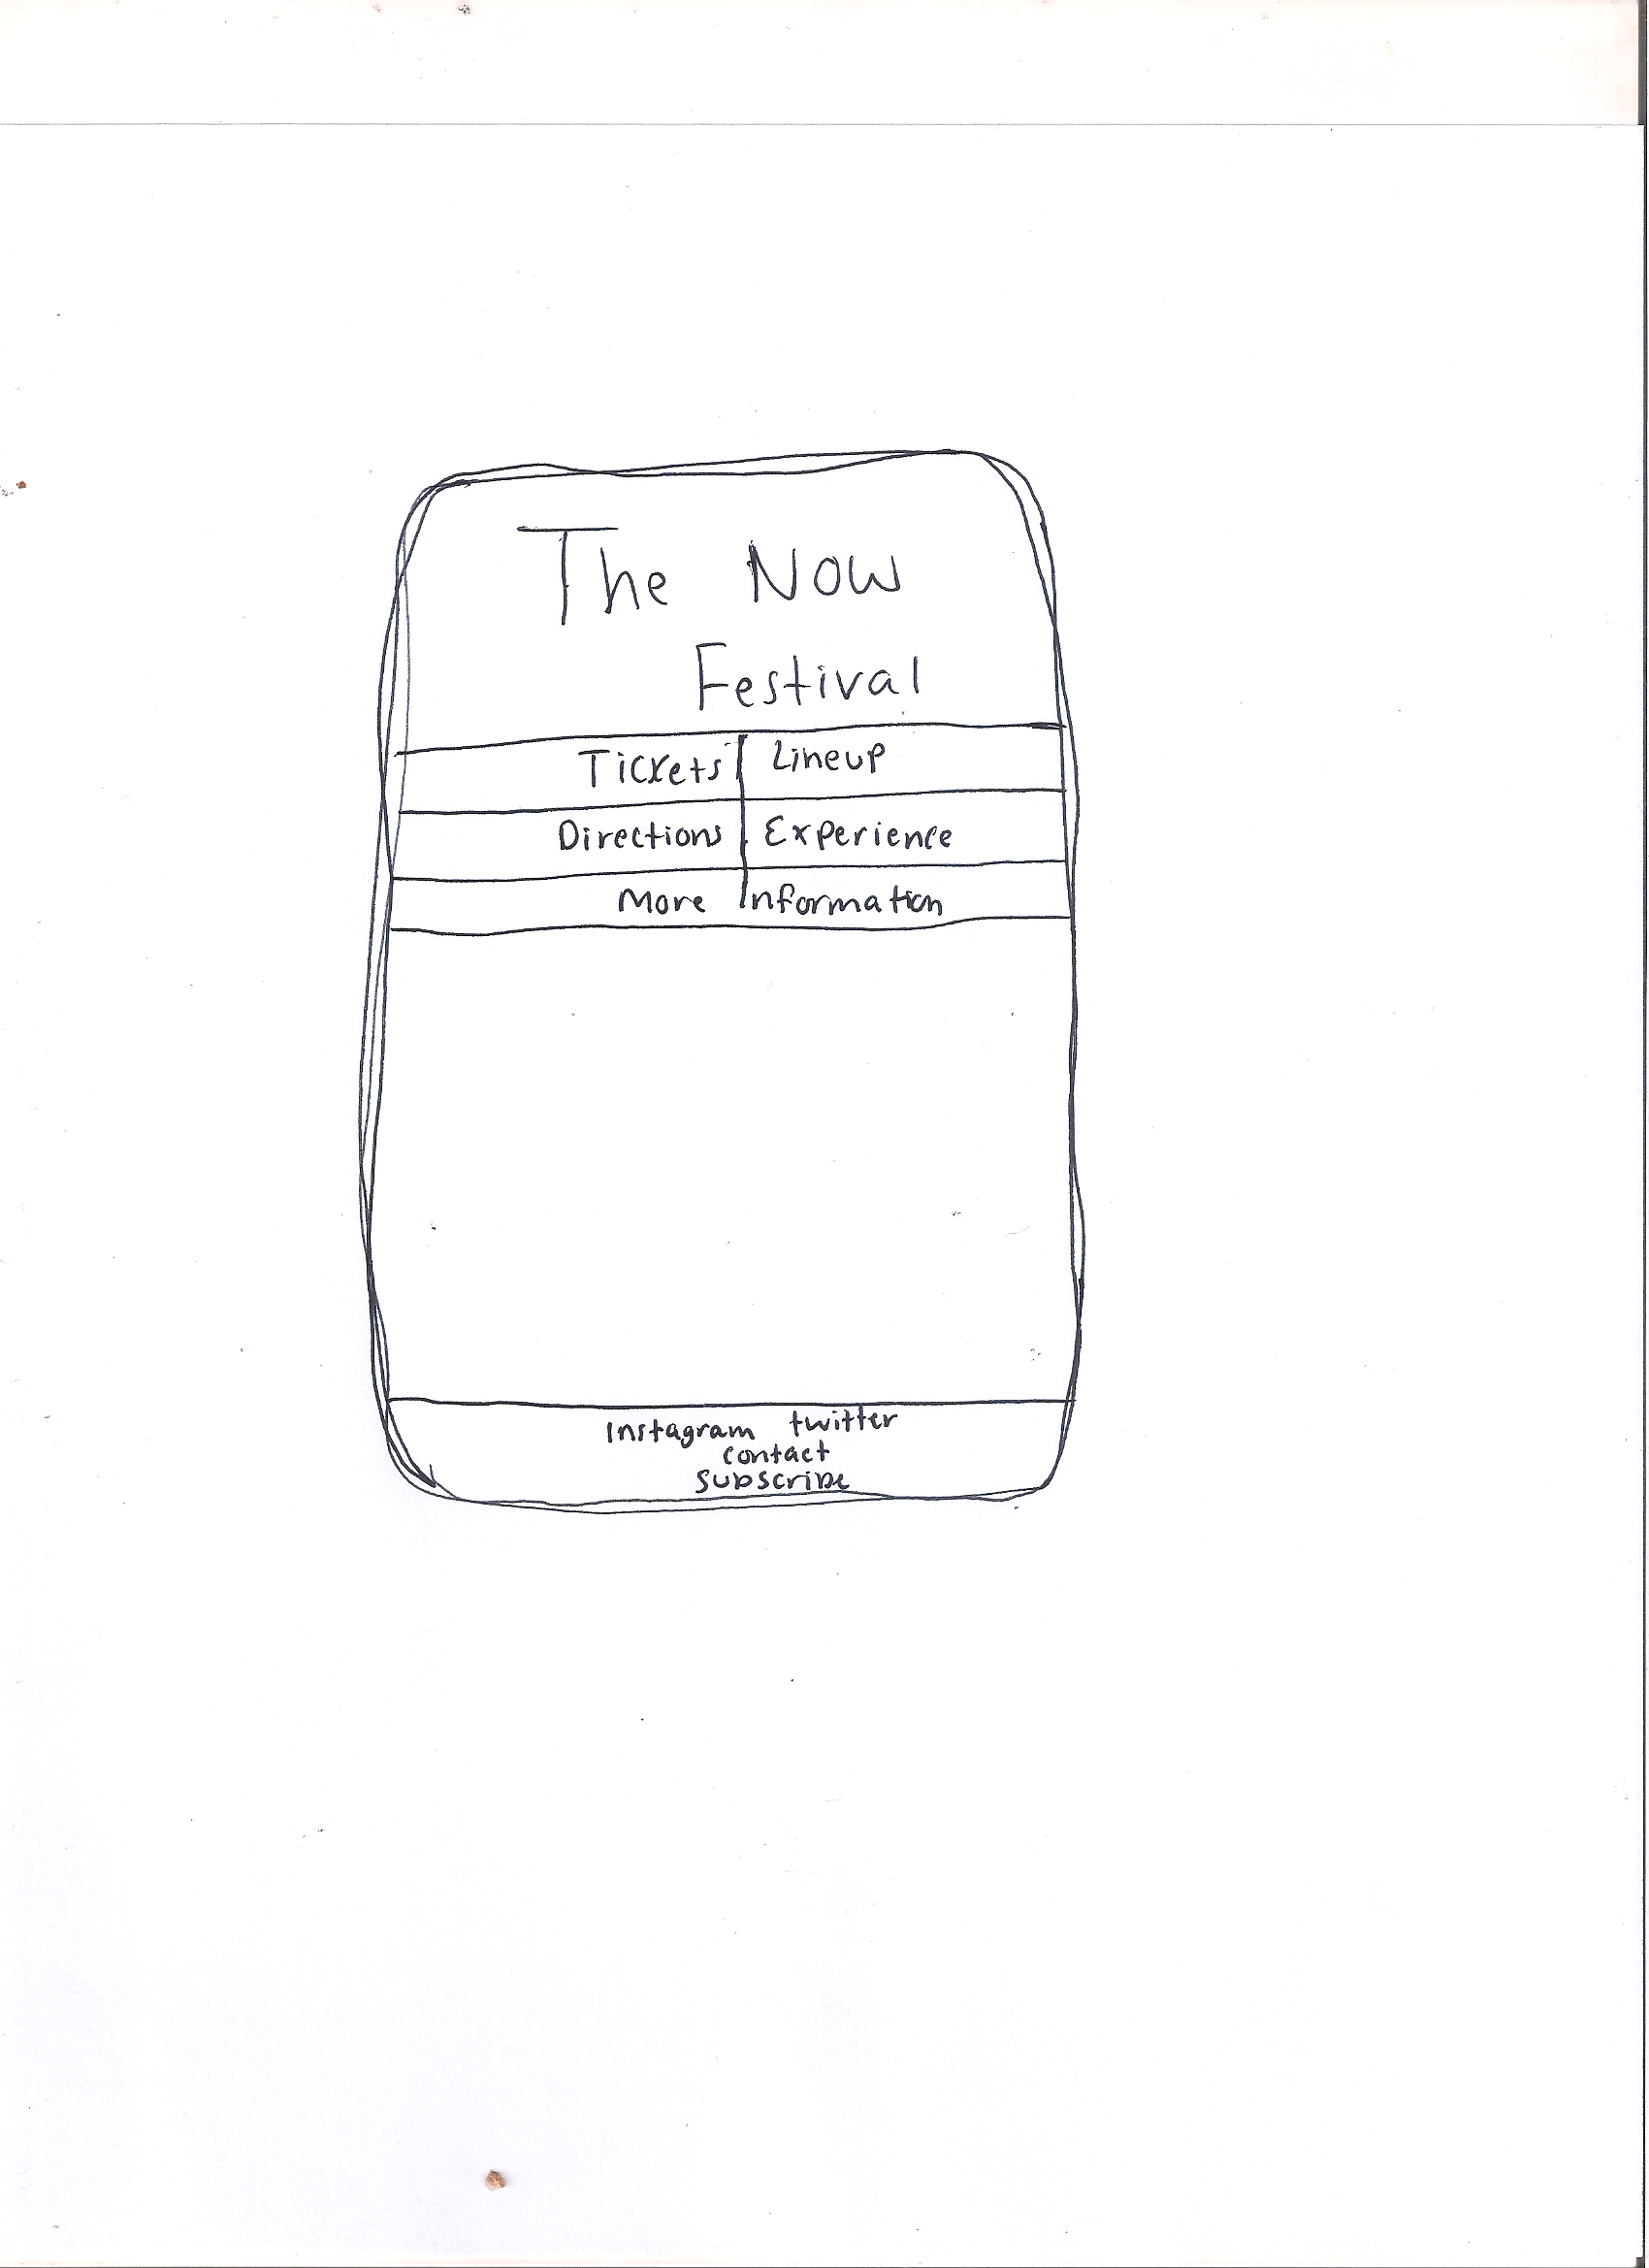 The Now
Festival
Tickets Lineup
Directions Experience
More Information
Instagram twitter
contact
subscribe